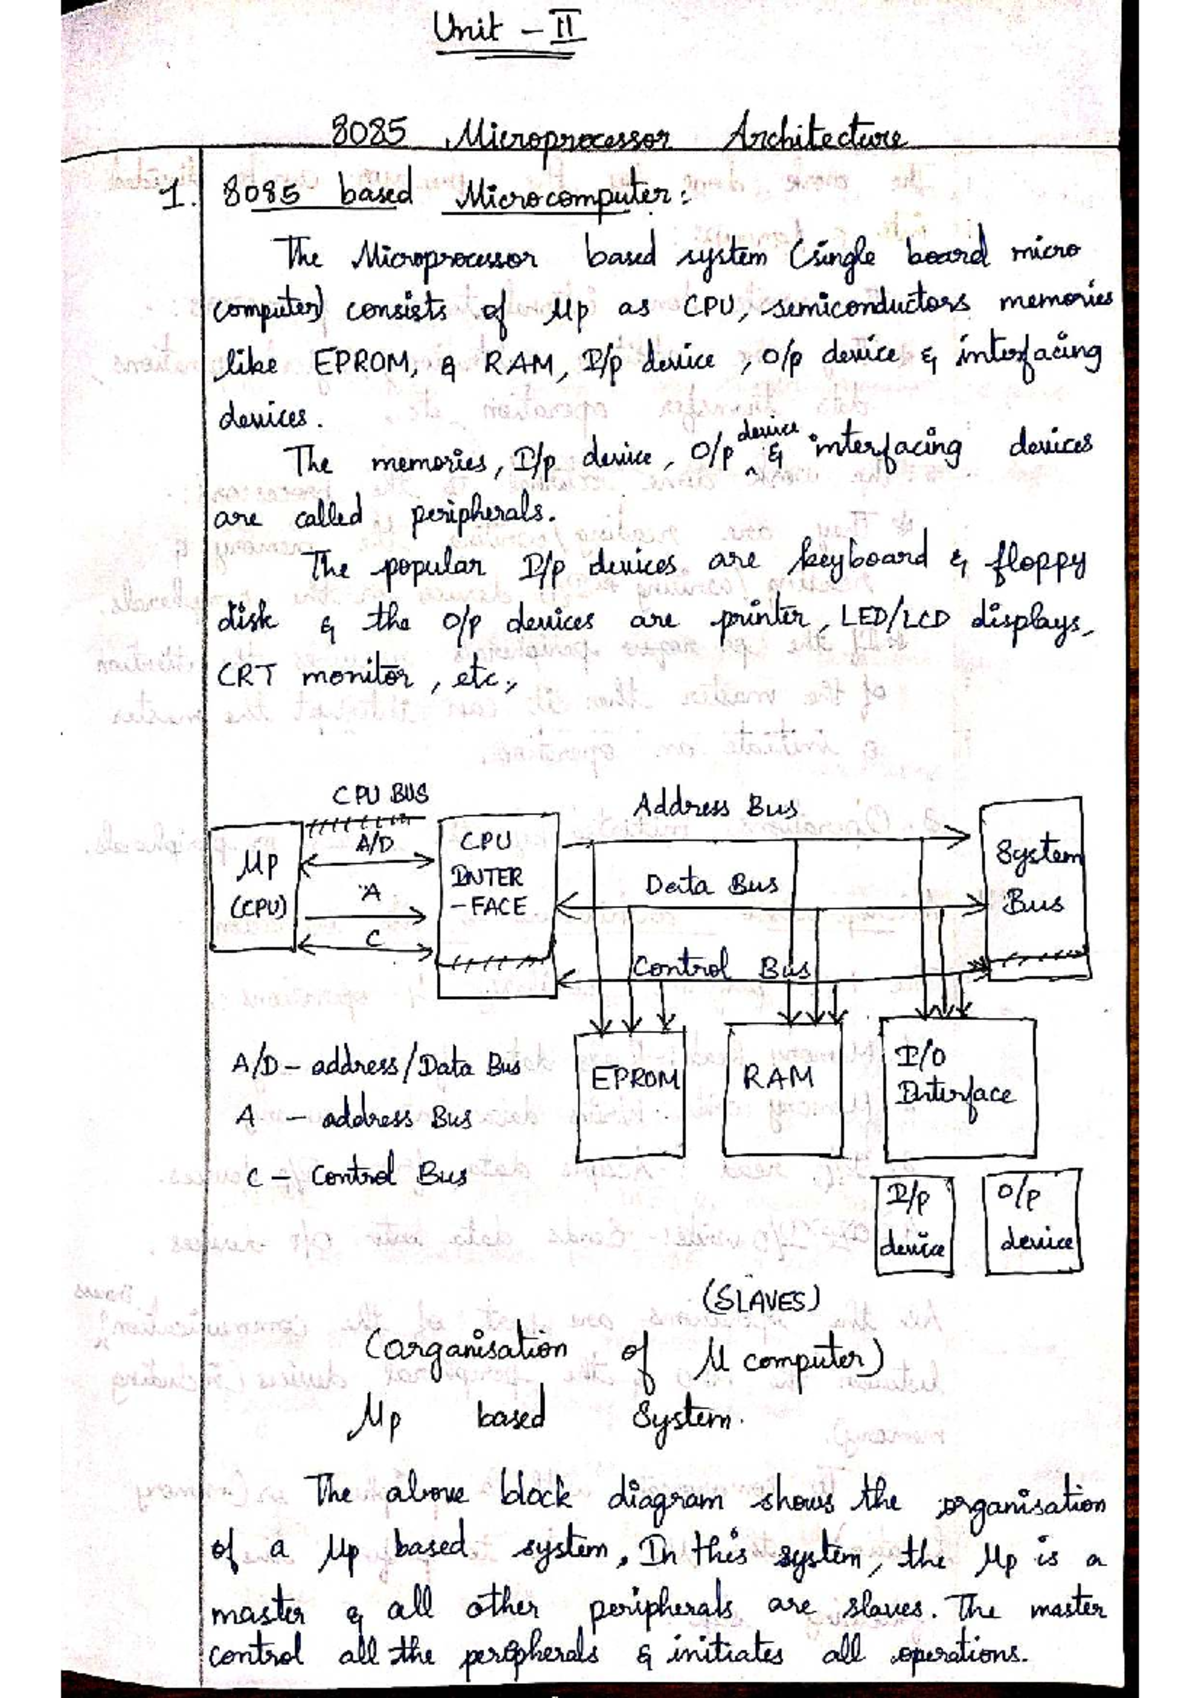 Unit - II
8085 Microprocessor Architecture
1. 8085 based Microcomputer:
The Microprocessor based system (single board micro
computer) consists of Mp as CPU, semiconductors memories
like EPROM, & RAM, I/p device, O/p device & interfacing
devices.
The memories, I/p device, O/p device & interfacing devices
are called peripherals.
The popular I/p devices are keyboard & floppy
disk & the O/p devices are printer, LED/LCD displays,
CRT monitor, etc.,
CPU BUS
Address Bus
A/D
Mp
(CPU)
A
C
CPU
INTER
-FACE
Data Bus
System
Bus
Control Bus
A/D - address/Data Bus
A - address Bus
C - Control Bus
EPROM
RAM
I/O
Interface
I/p
device
O/p
device
(SLAVES)
(organisation of M computer)
Mp based System.
The above block diagram shows the organisation
of a Mp based system, In this system, the Mp is a
master & all other peripherals are slaves. The master
control all the peripherals & initiates all operations.